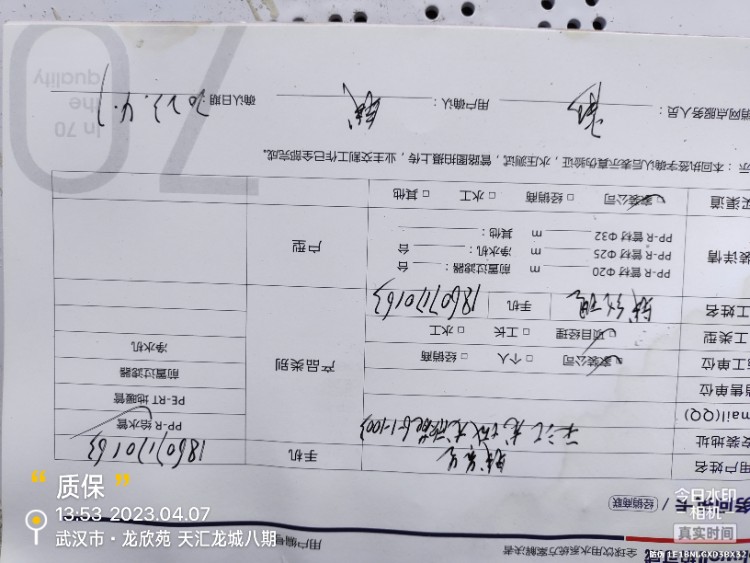 全球饮用水系统方案解决者
务
经销商联
用户编号
用户姓名
手机
18607170163
安装地址
天汇龙城
6-1-1003
mail(QQ)
售单位
工单位
家装公司 □ 个人 □ 经销商
工类型
项目经理 □ 工长 □ 水工
工姓名
手机
18607170163
产品类别
PP-R 给水管
PE-RT 地暖管
前置过滤器
净水机
装详情
PP-R 管材 Φ20 m 前置过滤器: 台
PP-R 管材 Φ25 m 净水机: 台
PP-R 管材 Φ32 m 其他:
户型
买渠道
家装公司 □ 经销商 □ 水工 □ 其他
示:本回执签字确认后表示真伪验证,水压测试,管路图拍摄上传,业主交割工作已全部完成。
销网点服务人员:
用户确认:
确认日期: 2023.4.7
70
In 70
the
quality
“ 质保 ”
13:53 2023.04.07
武汉市·龙欣苑 天汇龙城八期
今日水印
相机
真实时间